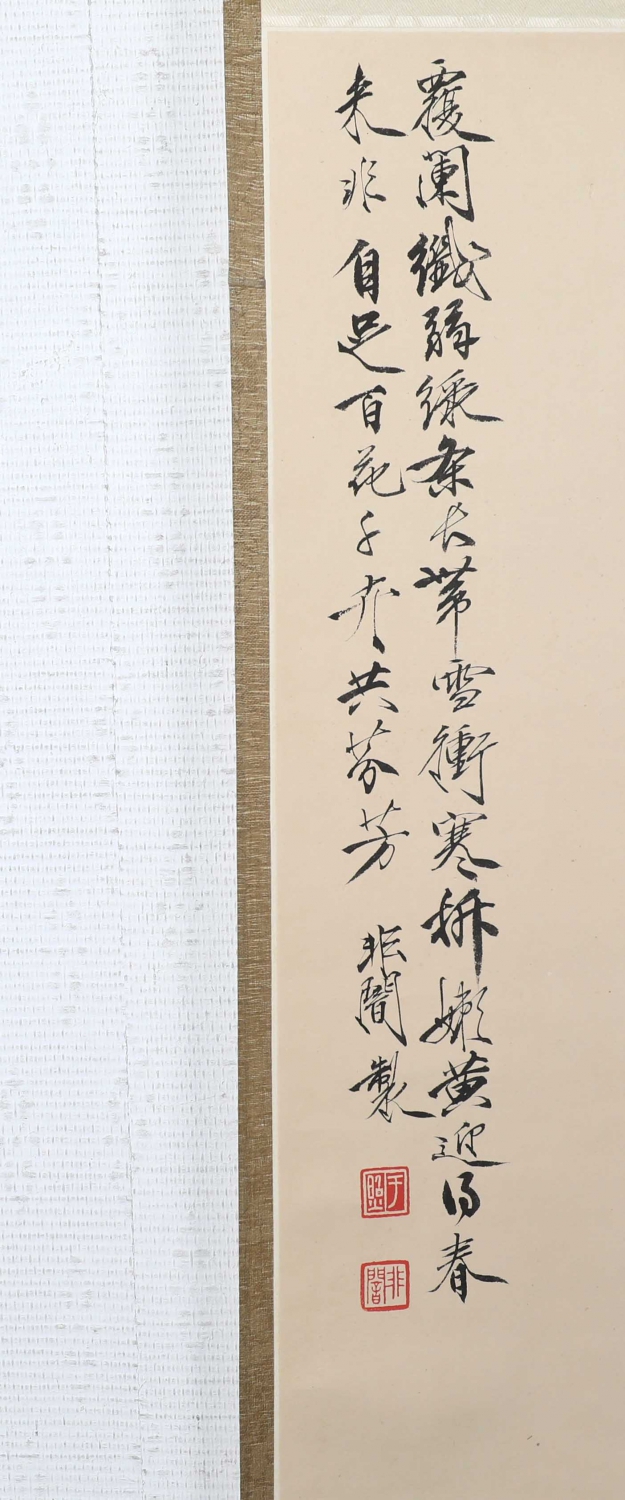 覆闌纖弱綠条長帶雪衝寒拆嫩黃迎得春
来非自足百花千卉共芬芳
非闇製
于照
非闇